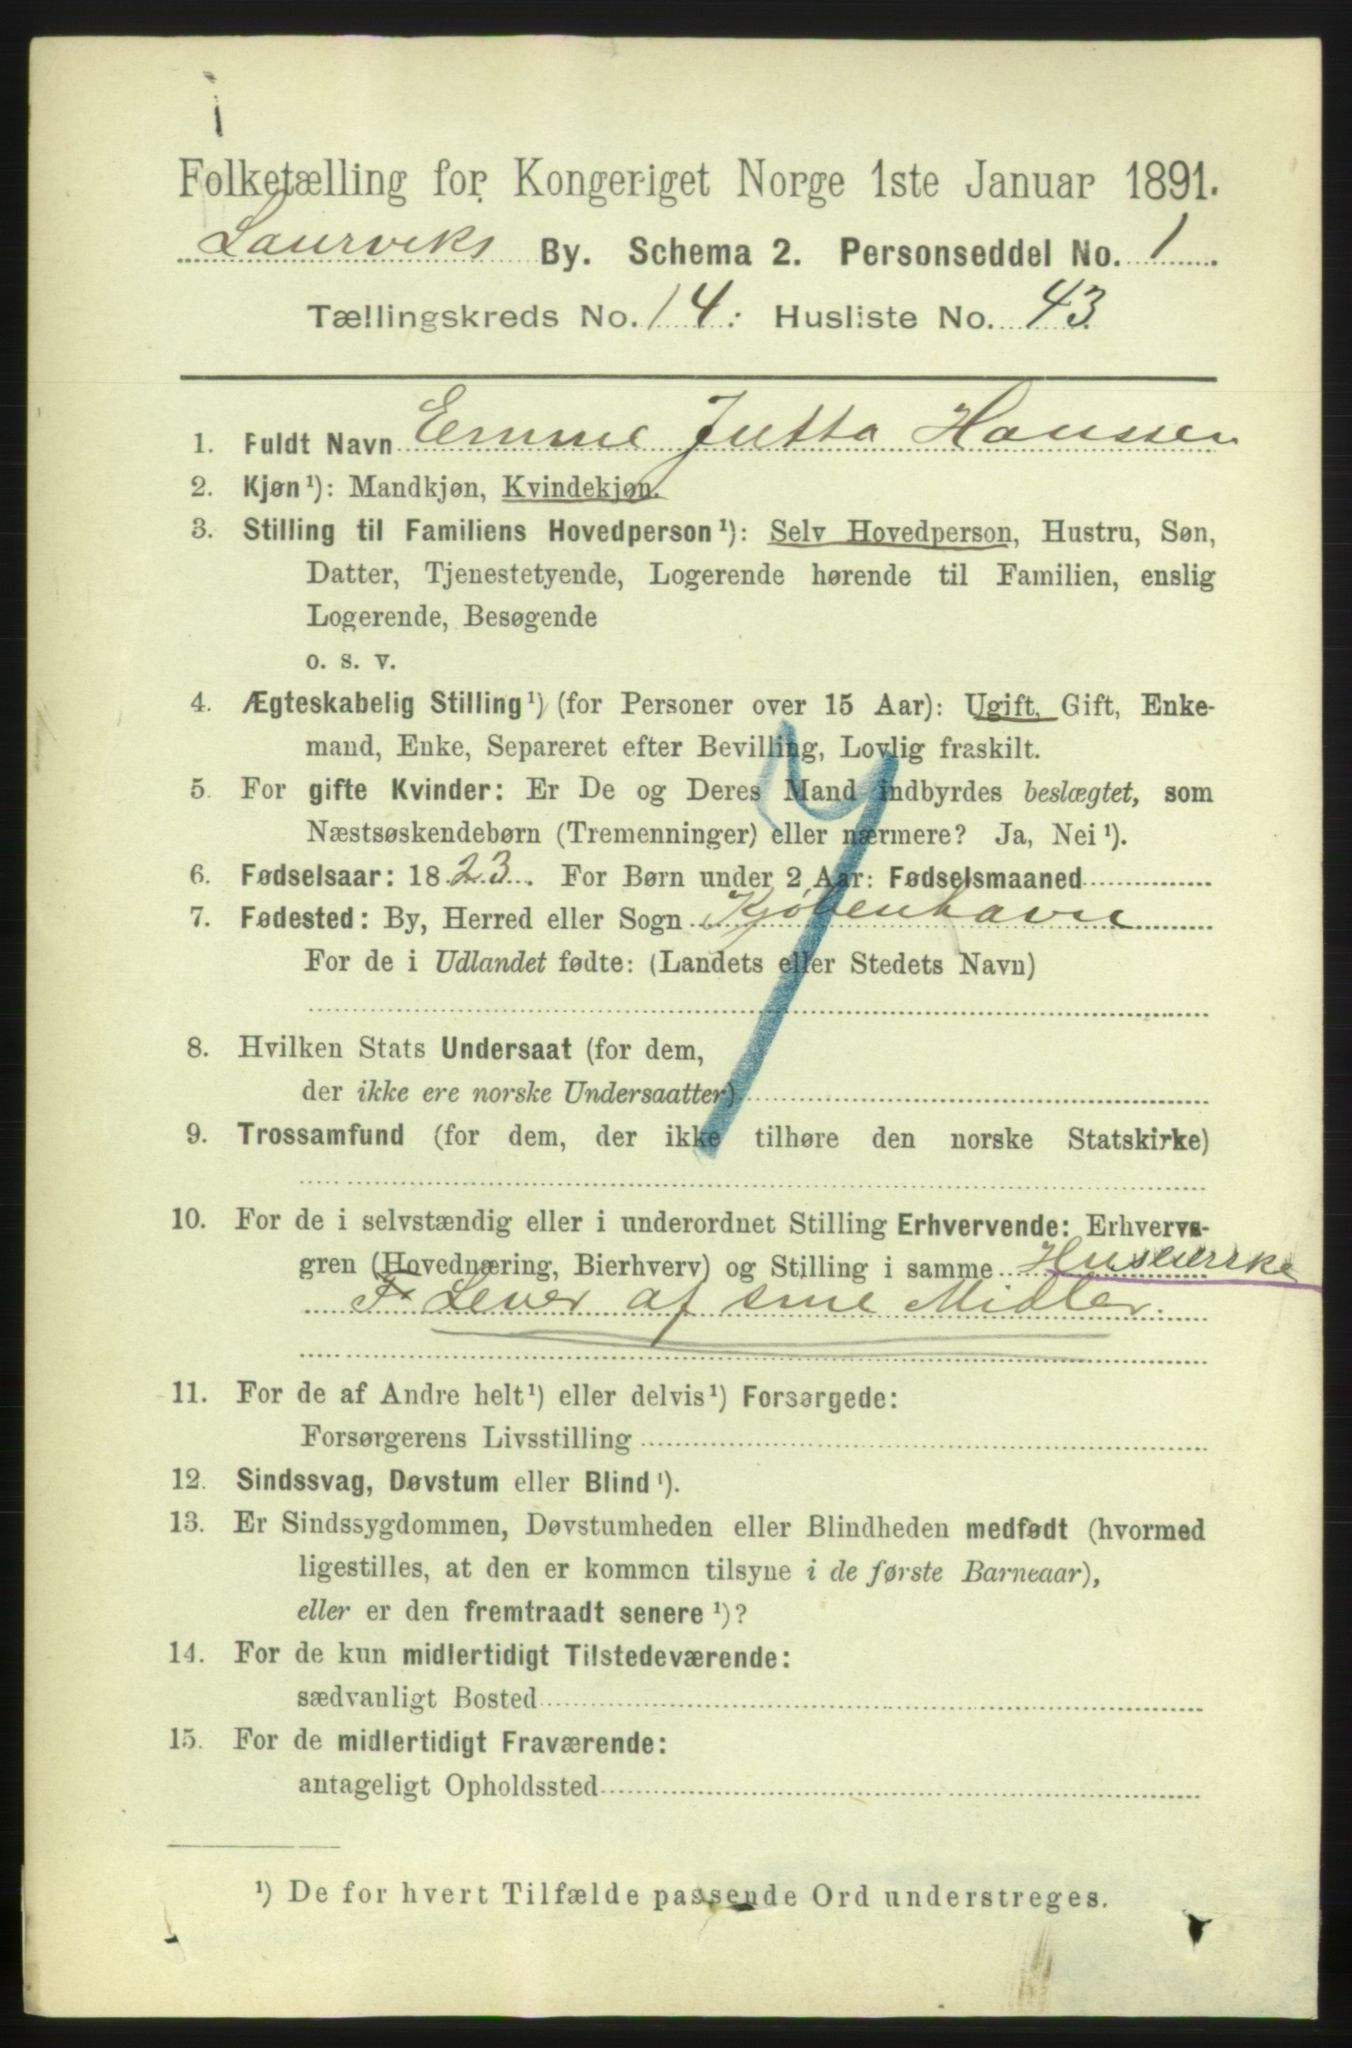 Folketælling for Kongeriget Norge 1ste Januar 1891.
Laurviks By. Schema 2. Personseddel No. 1
Tællingskreds No. 14: Husliste No. 43
1. Fuldt Navn Emme Jutta Hanssen
2. Kjøn ¹): Mandkjøn, Kvindekjøn.
3. Stilling til Familiens Hovedperson ¹): Selv Hovedperson, Hustru, Søn,
Datter, Tjenestetyende, Logerende hørende til Familien, enslig
Logerende, Besøgende
o. s. v.
4. Ægteskabelig Stilling ¹) (for Personer over 15 Aar): Ugift, Gift, Enke-
mand, Enke, Separeret efter Bevilling, Lovlig fraskilt.
5. For gifte Kvinder: Er De og Deres Mand indbyrdes beslægtet, som
Næstsøskendebørn (Tremenninger) eller nærmere? Ja, Nei ¹).
6. Fødselsaar: 1823. For Børn under 2 Aar: Fødselsmaaned
7. Fødested: By, Herred eller Sogn Kjøbenhavn
For de i Udlandet fødte: (Landets eller Stedets Navn)
8. Hvilken Stats Undersaat (for dem,
der ikke ere norske Undersaatter)
9. Trossamfund (for dem, der ikke tilhøre den norske Statskirke)
10. For de i selvstændig eller i underordnet Stilling Erhvervende: Erhvervs-
gren (Hovednæring, Bierhverv) og Stilling i samme Huseierske
Fx Lever af sine Midler.
11. For de af Andre helt ¹) eller delvis ¹) Forsørgede:
Forsørgerens Livsstilling
12. Sindssvag, Døvstum eller Blind ¹).
13. Er Sindssygdommen, Døvstumheden eller Blindheden medfødt (hvormed
ligestilles, at den er kommen tilsyne i de første Barneaar),
eller er den fremtraadt senere ¹)?
14. For de kun midlertidigt Tilstedeværende:
sædvanligt Bosted
15. For de midlertidigt Fraværende:
antageligt Opholdssted
¹) De for hvert Tilfælde passende Ord understreges.